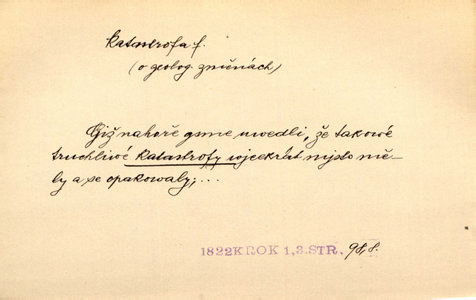 katastrofa f.
(o geolog. změnách)
Giž nahoře gsme uwedli, že takowé
truchliwé katastrofy wjcekrát mjsto mě-
ly a se opakowaly; ...
1822KROK 1,3.STR. 98,8.